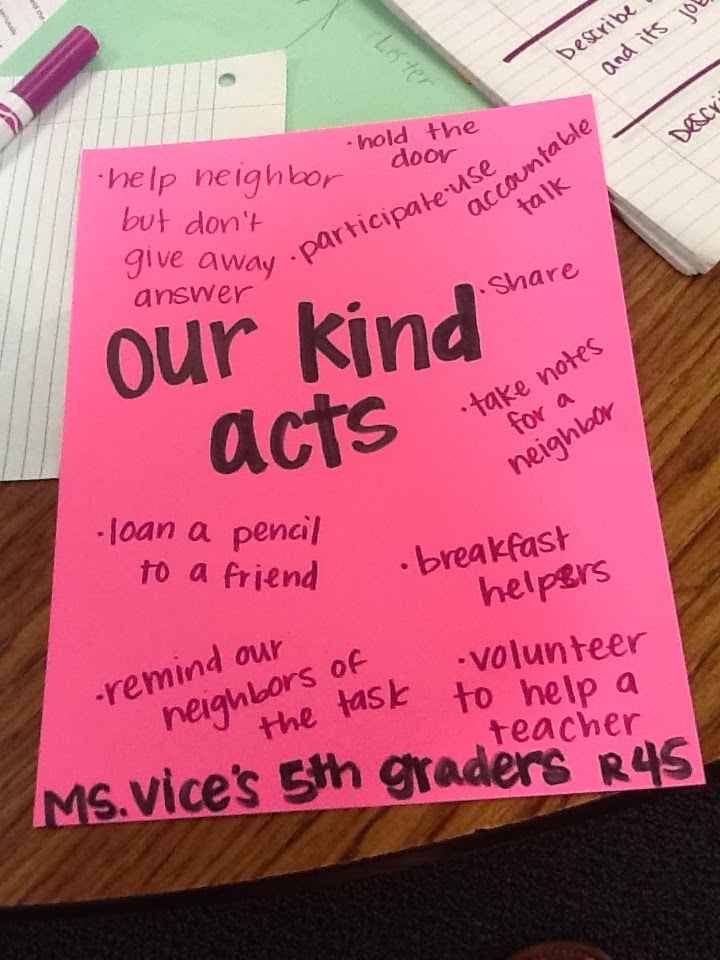 ·help neighbor
but don't
give away
answer
·hold the
door
·participate
·use
accountable
talk
·share
our kind
acts
·take notes
for a
neighbor
·loan a pencil
to a friend
·breakfast
helpers
·remind our
neighbors of
the task
·volunteer
to help a
teacher
Ms. Vice's 5th graders R45
Describe
and its jo
Descri